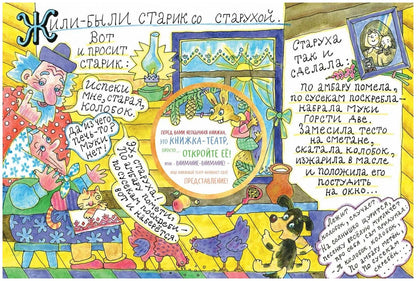 Жили-были старик со старухой.
Вот
и просит
старик:
Испеки
мне, старая,
колобок.
Да из чего
печь-то?
Муки
Эх, старуха!
По амбару помети,
по сусекам поскреби -
вот и наберется.
Перед вами необычная книжка,
это книжка-театр,
просто...
откройте её!
и - внимание-внимание -
наш книжный театр начинает своё
представление!
Старуха
так и
сделала:
по амбару помела,
по сусекам поскребла-
набрала муки
горсти две.
Замесила тесто
на сметане,
скатала колобок,
изжарила в масле
и положила его
постудить
на окно...
Лежит
колобок, скучает,
на солнышко щурится,
песенку
про себя сам
Я колобок, колобок,
По амбару метён,
По сусекам
скребён